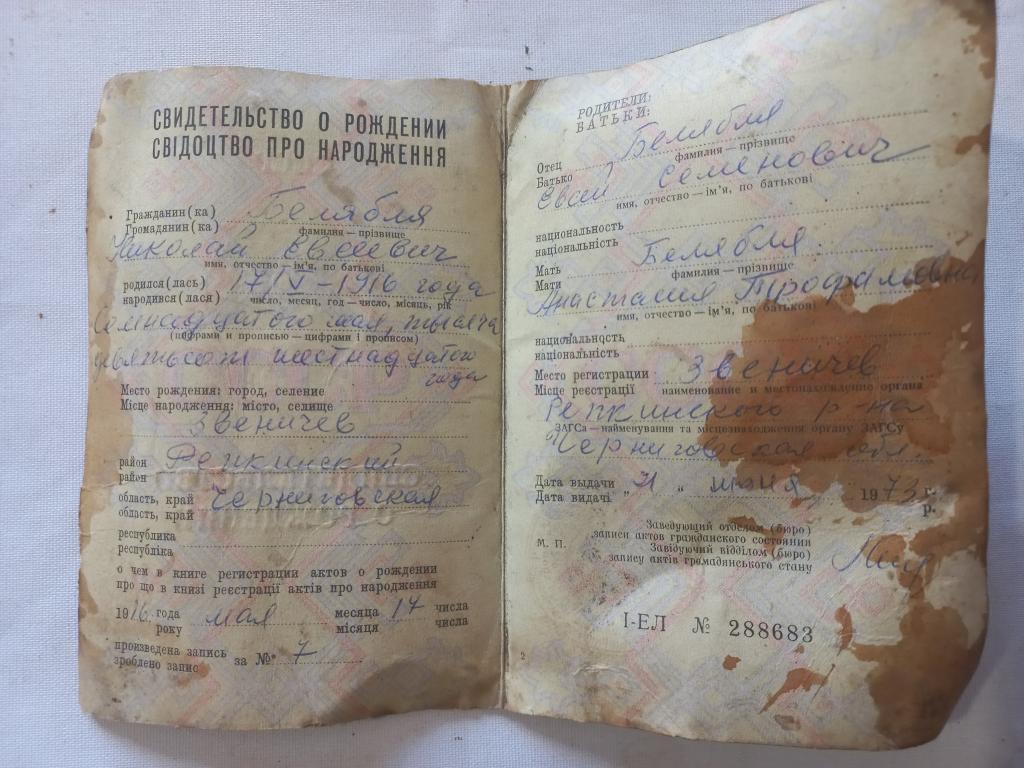 СВИДЕТЕЛЬСТВО О РОЖДЕНИИ
СВІДОЦТВО ПРО НАРОДЖЕННЯ
Гражданин(ка) Белябля
Громадянин(ка) фамилия — прізвище
Николай Евсеевич
имя, отчество — ім'я, по батькові
родился(лась) 17/V - 1916 года
народився(лася) число, месяц, год — число, місяць, рік
Семнадцатого мая, тысяча
(цифрами и прописью — цифрами і прописом)
девятьсот шестнадцатого
года
Место рождения: город, селение
Місце народження: місто, селище
Звеничев
район Репкинский
район
область, край Черниговская
область, край
республика
республіка
о чем в книге регистрации актов о рождении
про що в книзі реєстрації актів про народження
1916 года мая месяца 17 числа
року місяця числа
произведена запись за № 7
зроблено запис
РОДИТЕЛИ:
БАТЬКИ:
Отец Белябля
Батько фамилия — прізвище
Евсей Семенович
имя, отчество — ім'я, по батькові
национальность
національність
Мать Белябля
Мати фамилия — прізвище
Анастасия Трофимовна
имя, отчество — ім'я, по батькові
национальность
національність
Место регистрации Звеничев
Місце реєстрації наименование и местонахождение органа
Репкинского р-на
ЗАГСа — найменування та місцезнаходження органу ЗАГСу
Черниговская обл.
Дата выдачи „ 21 „ июня 1973 г.
Дата видачі р.
Заведующий отделом (бюро)
записи актов гражданского состояния
М. П. Завідуючий відділом (бюро)
запису актів громадянського стану
І-ЕЛ № 288683
2